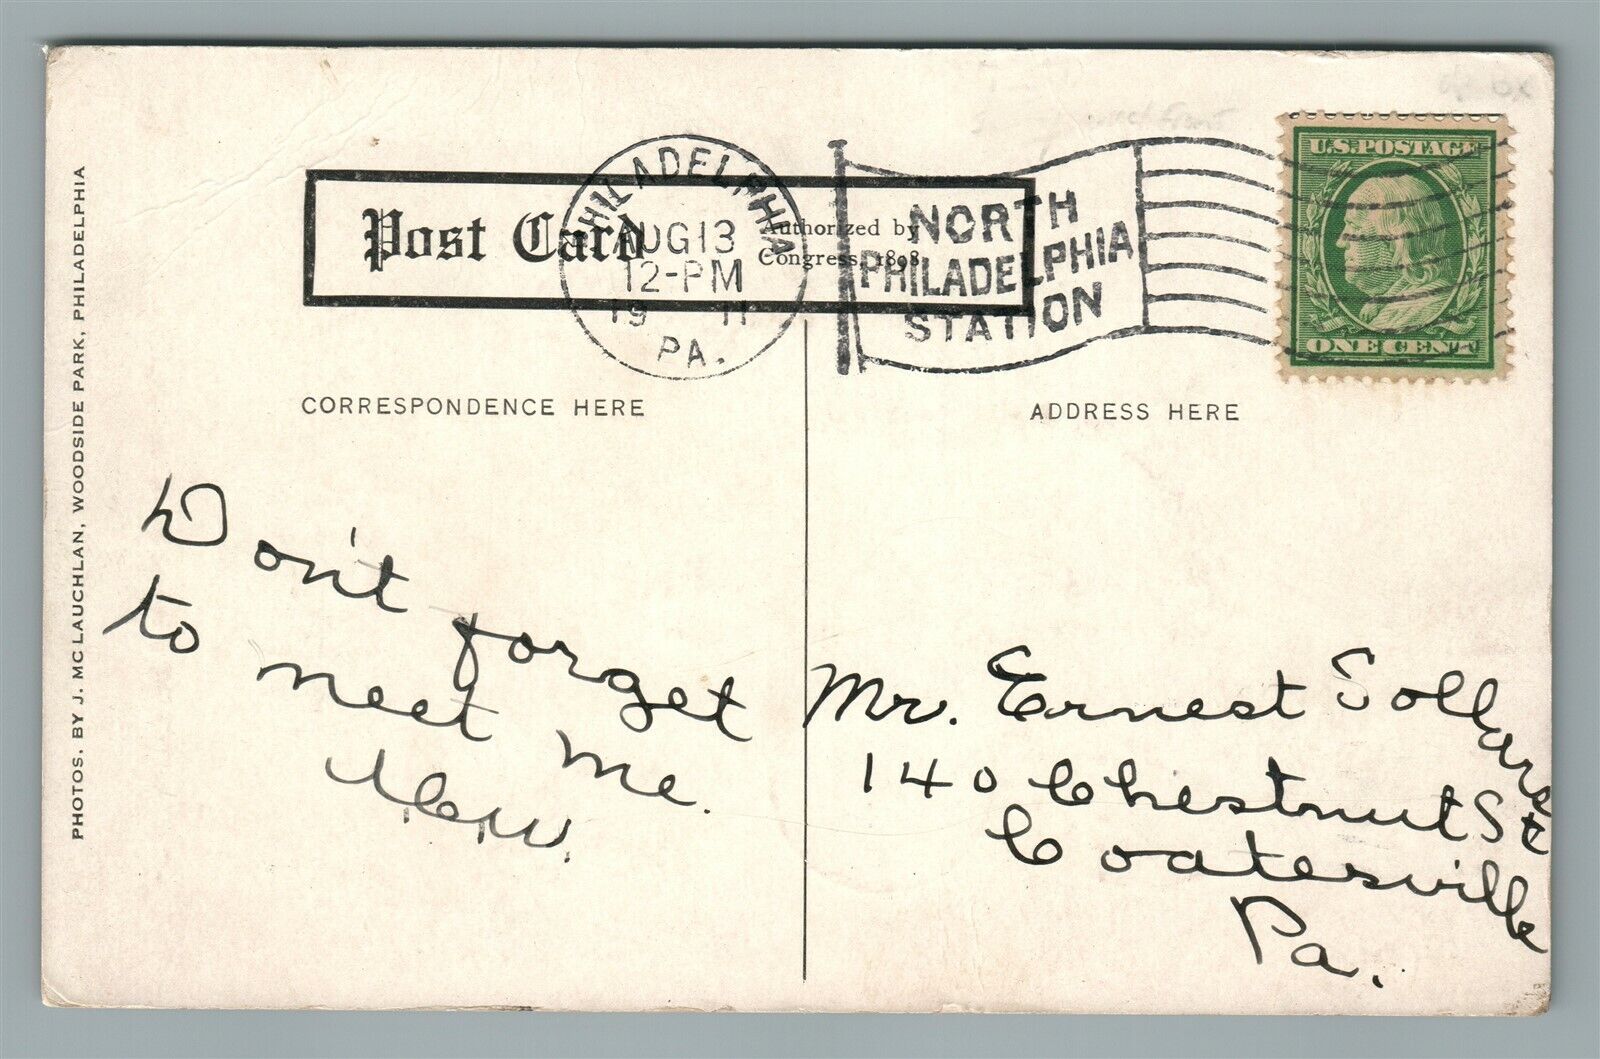 PHOTOS. BY J. MCLAUCHLAN, WOODSIDE PARK, PHILADELPHIA
Post Card
Authorized by
Congress, 1898
PHILADELPHIA
AUG 13
12-PM
19 11
PA.
NORTH
PHILADELPHIA
STATION
U.S. POSTAGE
ONE CENT
CORRESPONDENCE HERE
Don't forget
to meet me.
ADDRESS HERE
Mr. Ernest Sollars
140 Chestnut St
Coatesville
Pa.